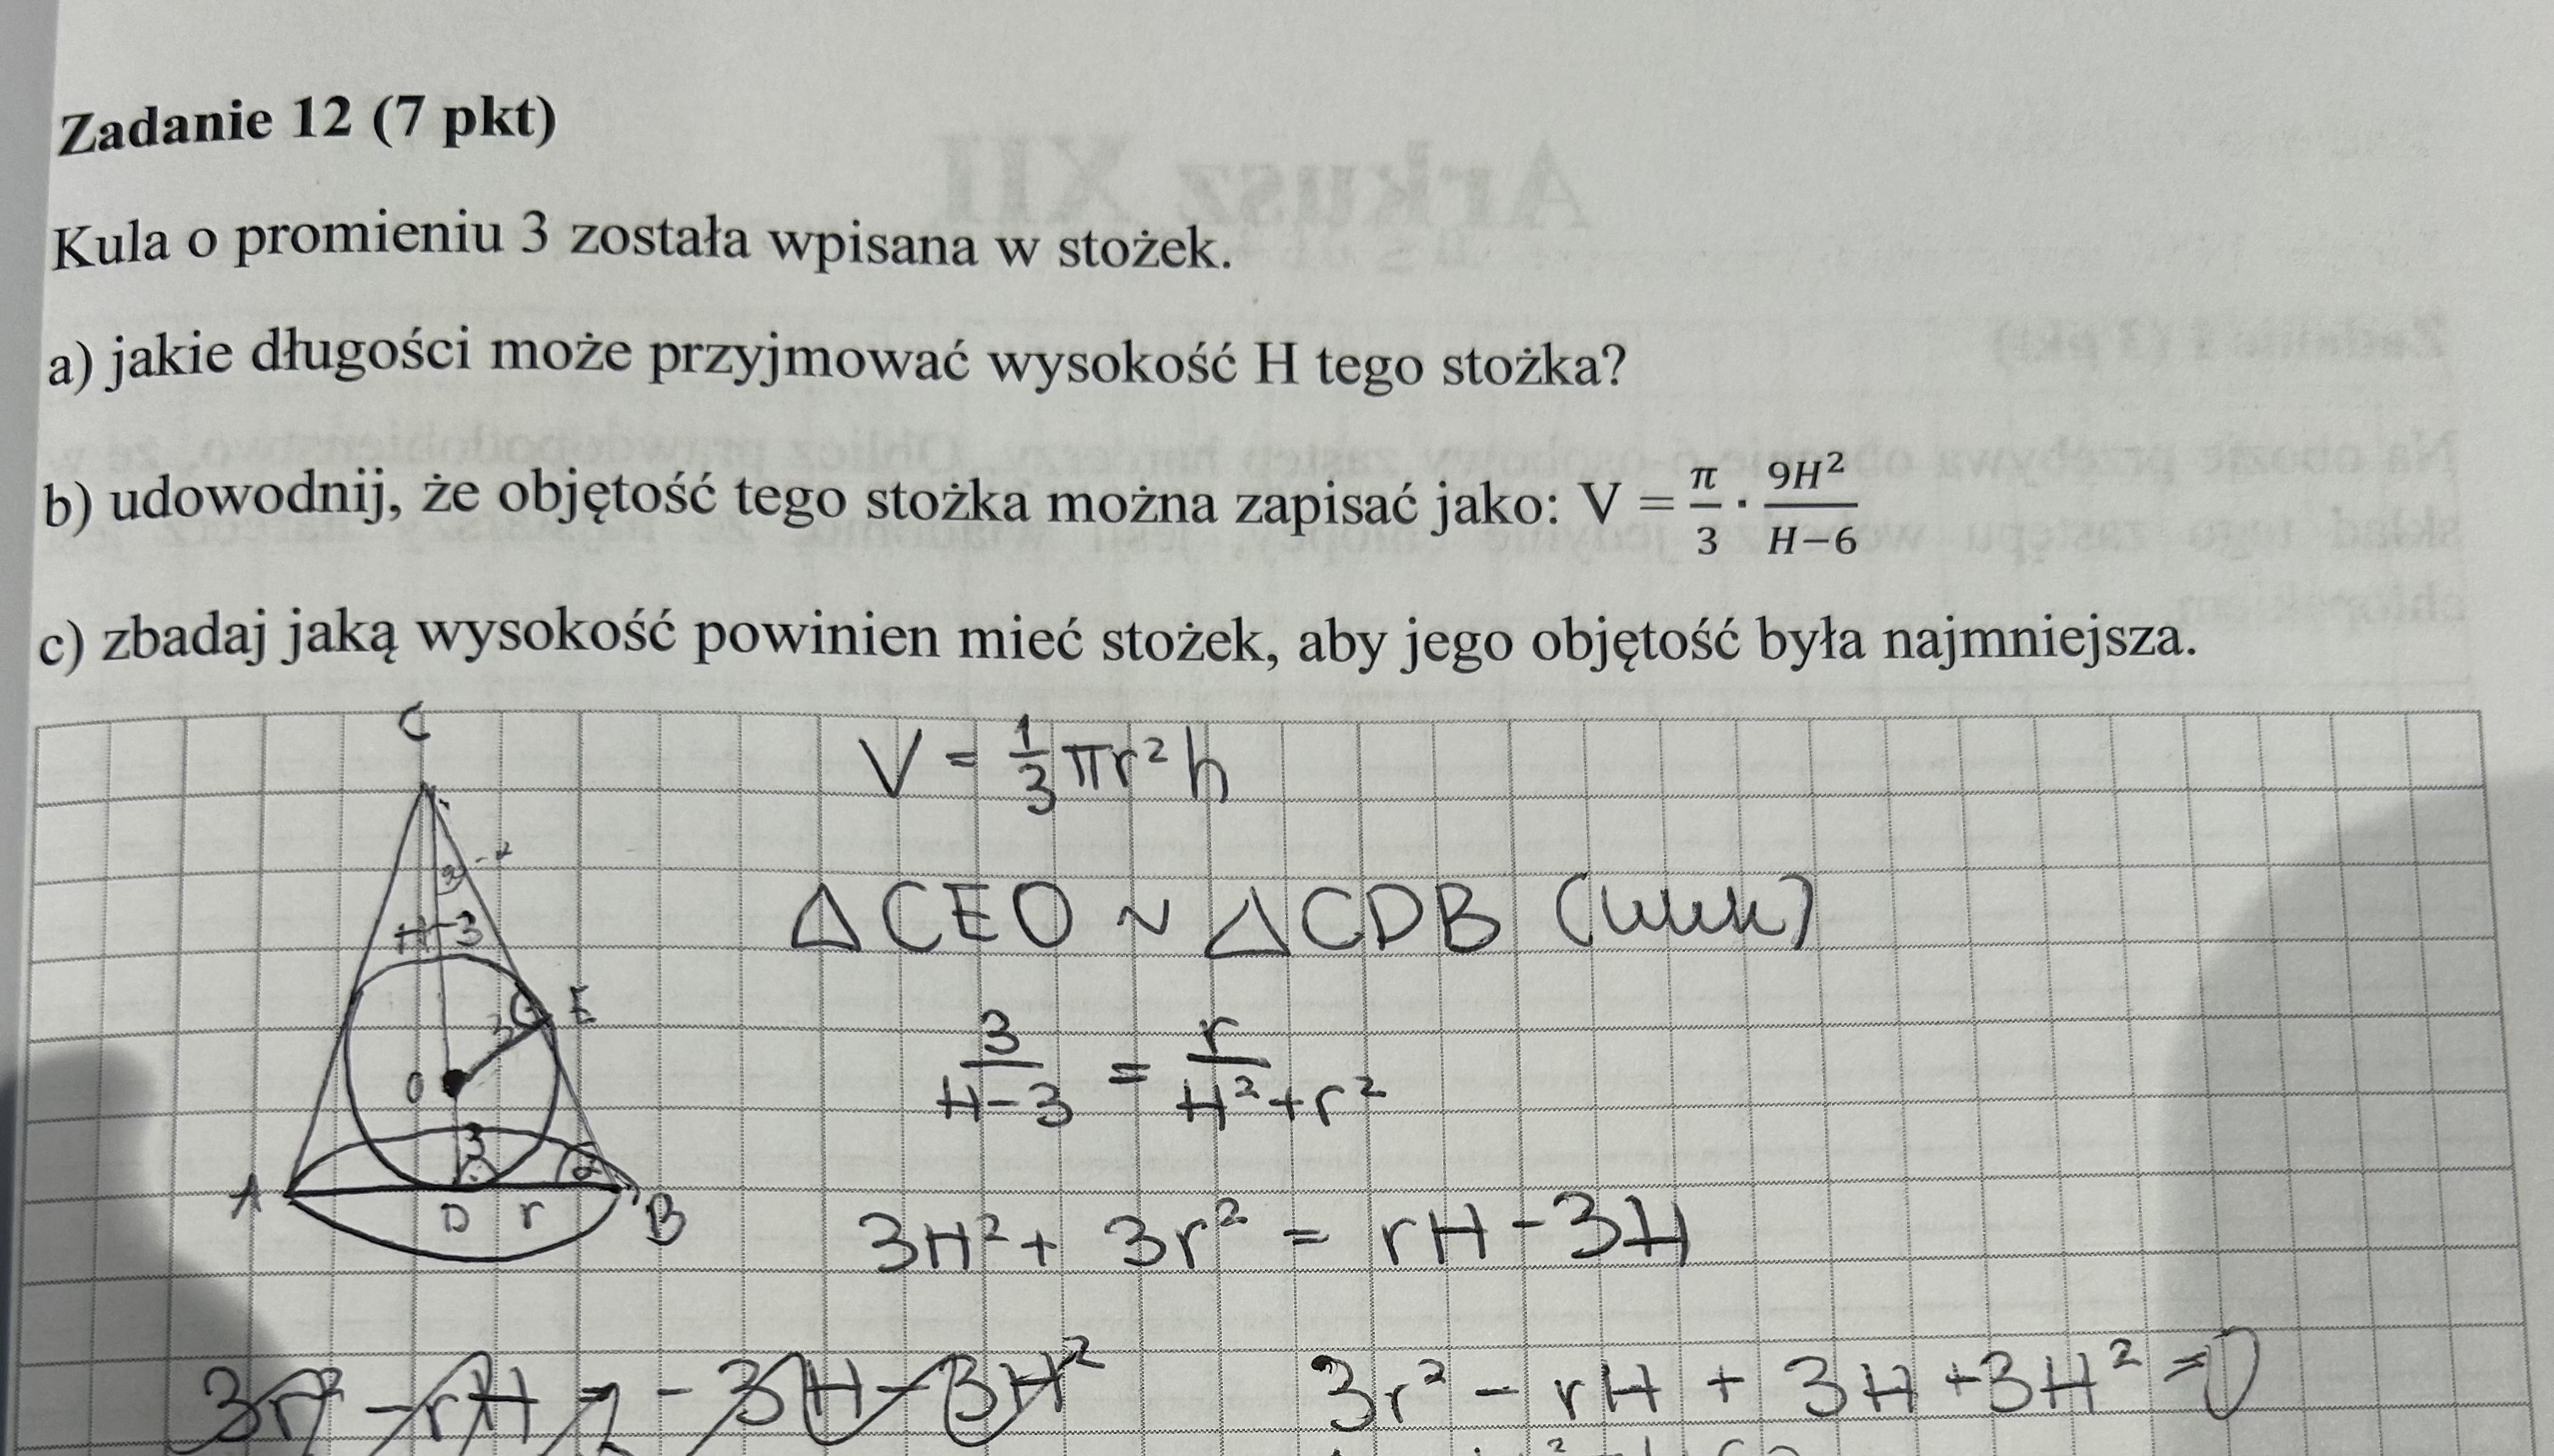 Zadanie 12 (7 pkt)
Kula o promieniu 3 została wpisana w stożek.
a) jakie długości może przyjmować wysokość H tego stożka?
b) udowodnij, że objętość tego stożka można zapisać jako: V = π/3 · 9H²/(H−6)
c) zbadaj jaką wysokość powinien mieć stożek, aby jego objętość była najmniejsza.
C
V = 1/3 πr²h
H-3
△CEO ~ △CDB (kkk)
E
3
O
3/(H-3) = r/(H²+r²)
3
α
A
D r B
3H² + 3r² = rH - 3H
3r² - rH + 3H + 3H² = 0